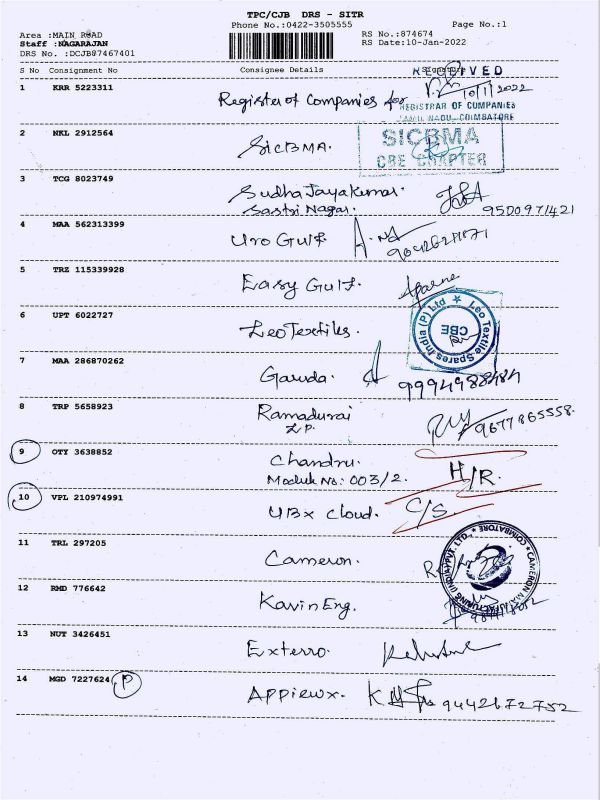 TPC/CJB DRS - SITR
Phone No.:0422-3505555 Page No.:1
Area :MAIN ROAD RS No.:874674
Staff :NAGARAJAN RS Date:10-Jan-2022
DRS No. :DCJB87467401
S No Consignment No Consignee Details Signature
RECEIVED
1 KRR 5223311 Register of Companies for 10/1/2022
REGISTRAR OF COMPANIES
TAMIL NADU, COIMBATORE
2 NKL 2912564 SICBMA.
SICBMA
CBE CHAPTER
3 TCG 8023749 Sudha Jayakumar.
Sastri Nagar. 9500971421
4 MAA 562313399 Uro Gulf.
5 TRZ 115339928 Easy Gulf.
6 UPT 6022727 Leo Textiles.
Leo Textile Spares India (P) Ltd
CBE
7 MAA 286870262 Garuda.
8 TRP 5658923 Ramadurai 9677865558.
9 OTY 3638852 Chandru. H/R.
Module No: 003/2.
10 VPL 210974991 UBx Cloud. C/S.
11 TRL 297205 Cameron.
CAMERON MANUFACTURING (INDIA) PVT. LTD. COIMBATORE
12 RMD 776642 Kavin Eng.
13 NUT 3426451 Exterro.
14 MGD 7227624 P Appiewx. 9442672752